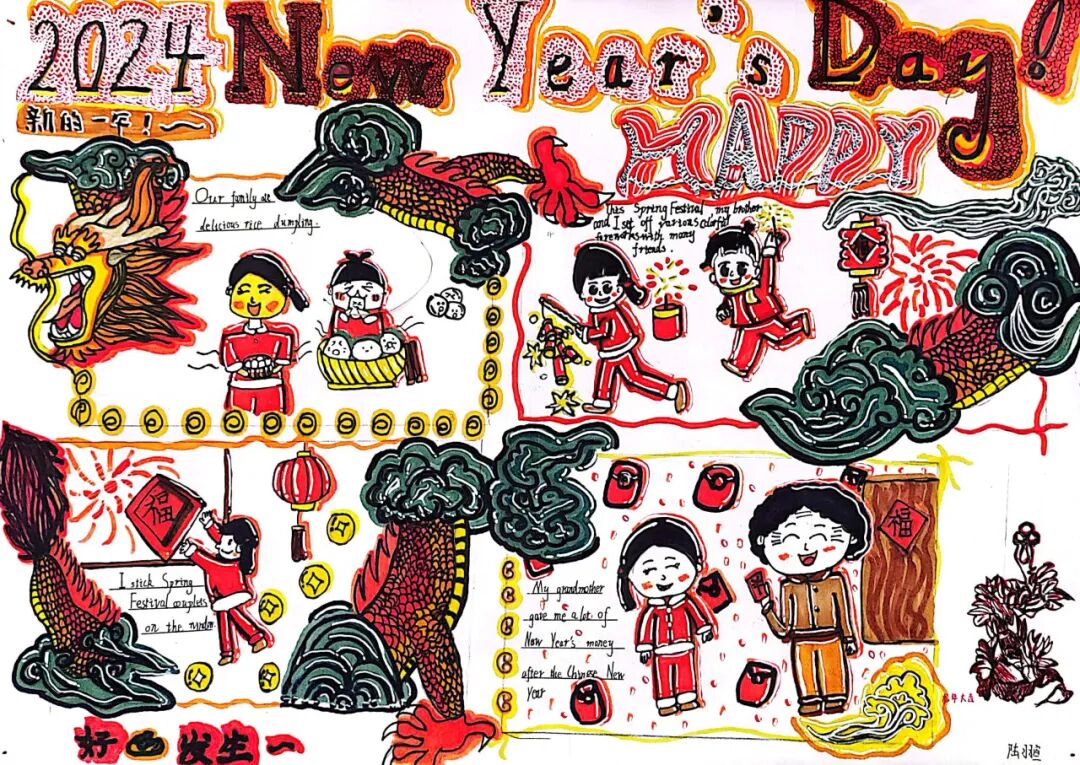 2024 New Year's Day!
新的一年！
HAPPY
Our family ate
delicious rice dumpling.
This Spring Festival, my brother
and I set off various colorful
fireworks with many
friends.
福
I stick Spring
Festival couplets
on the window.
福
My grandmother
gave me a lot of
New Year's money
after the Chinese New
Year
好 发生